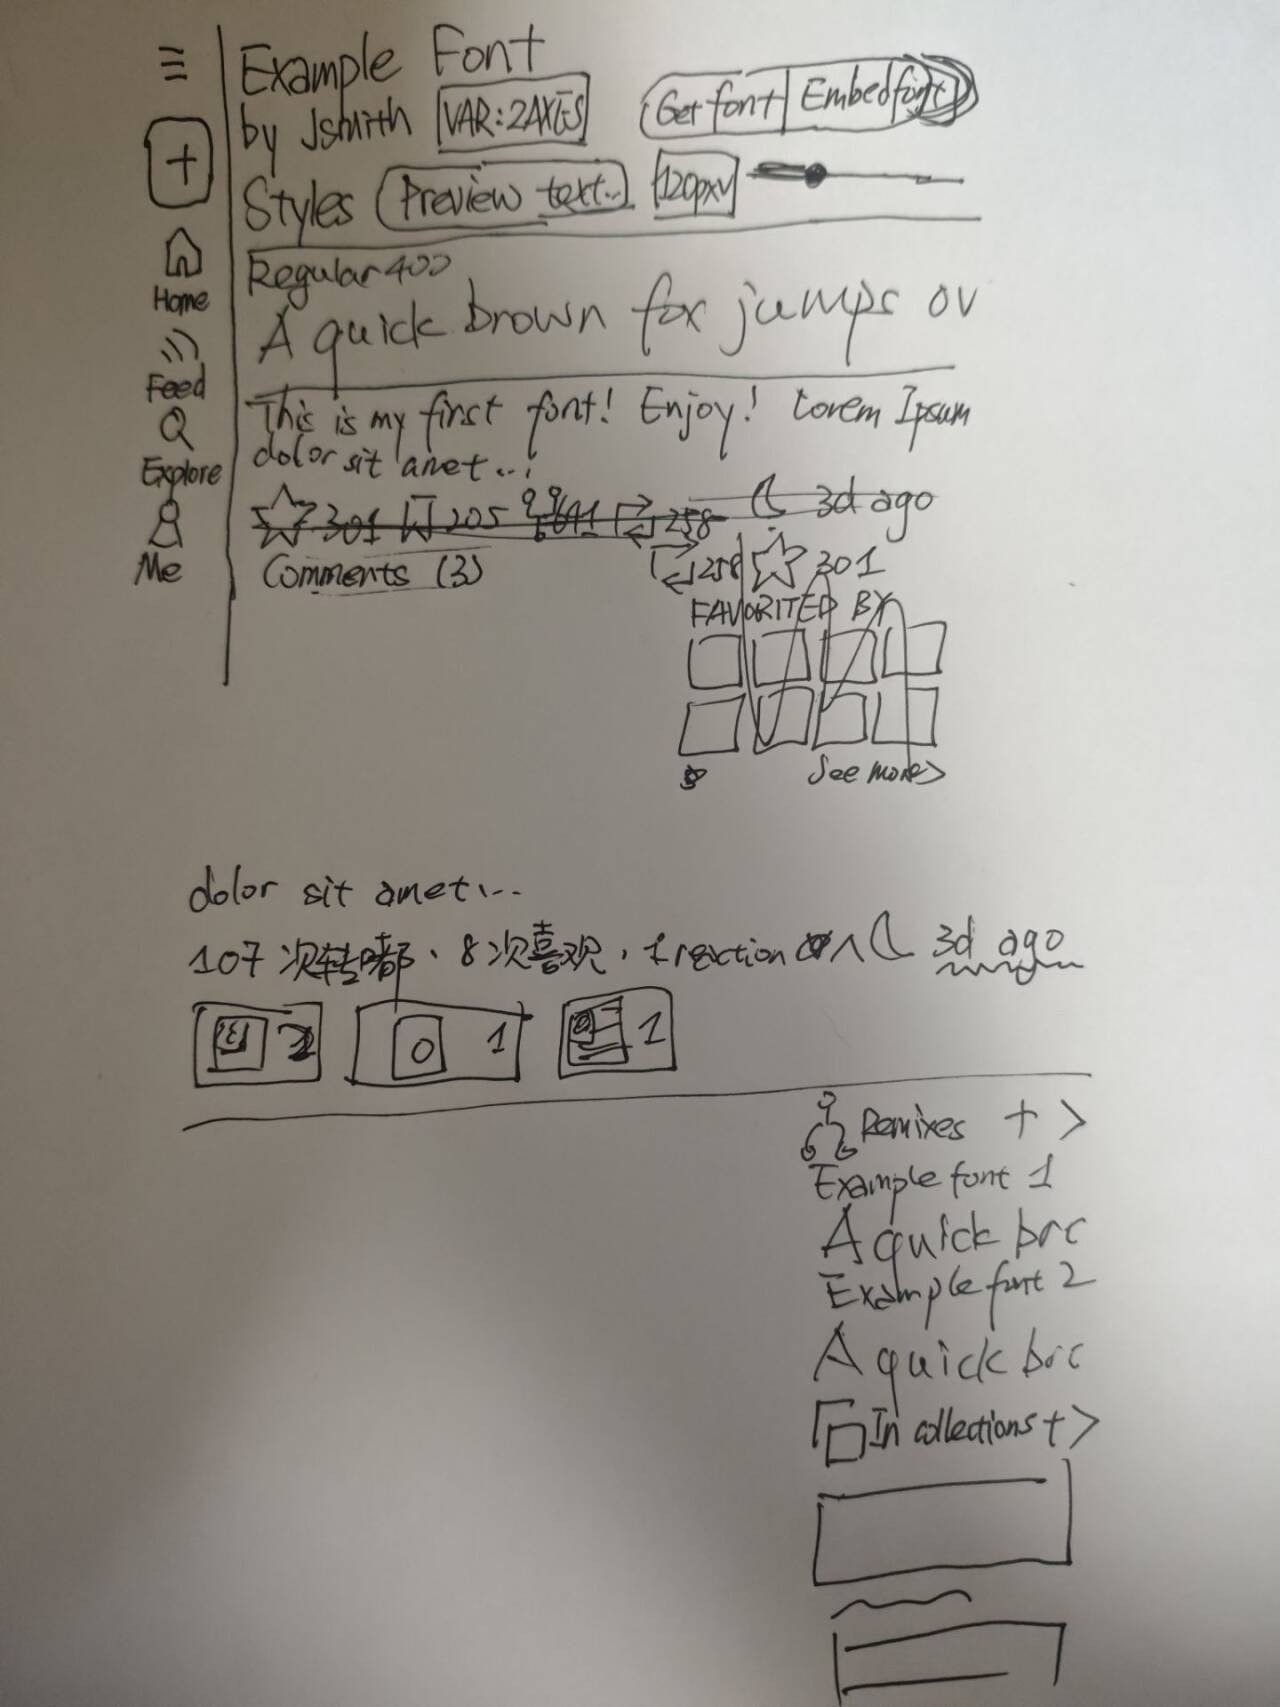 Example Font
by Jsmith VAR:2AXES Get font Embed font
Styles Preview text... 120px
Regular 400
A quick brown fox jumps ov
Home
Feed
Explore
Me
This is my first font! Enjoy! Lorem Ipsum
dolor sit amet...
301 205 258 3d ago
Comments (3) 258 301
FAVORITED BY
See more >
dolor sit amet...
107 次转嘟、8 次喜欢, 1 reaction 3d ago
2 1 1
Remixes + >
Example font 1
A quick brc
Example font 2
A quick brc
In collections + >